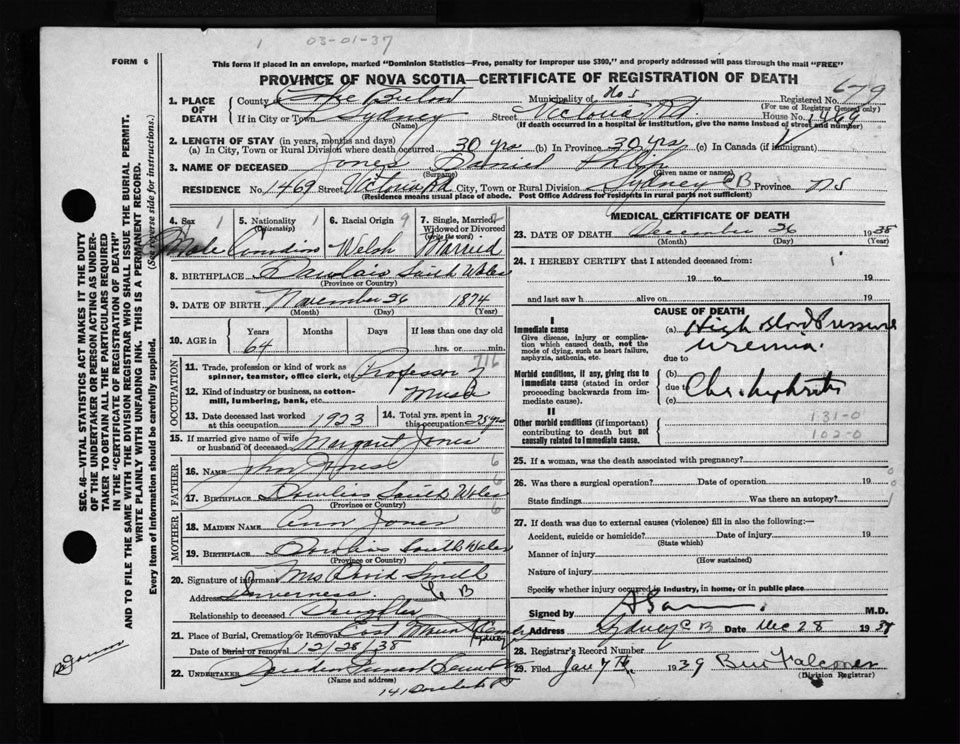 1 03-01-37
FORM 6
This form if placed in an envelope, marked "Dominion Statistics—Free, penalty for improper use $300," and properly addressed will pass through the mail "FREE"
PROVINCE OF NOVA SCOTIA—CERTIFICATE OF REGISTRATION OF DEATH
679
1. PLACE OF DEATH County of Cape Breton Municipality of Registered No.
(For use of Registrar General only)
If in City or Town Sydney Street Victoria Rd House No. 1469
(Name) (If death occurred in a hospital or institution, give the name instead of street and number)
2. LENGTH OF STAY (in years, months and days)
(a) In City, Town or Rural Division where death occurred 30 yrs (b) In Province 30 yrs (c) In Canada (if immigrant)
3. NAME OF DECEASED Jones Daniel
(Surname) (Given name or names)
RESIDENCE No. 1469 Street Victoria Rd City, Town or Rural Division Sydney CB Province NS
(Residence means usual place of abode. Post Office Address for residents in rural parts not sufficient)
4. Sex 1 5. Nationality 1 6. Racial Origin 9 7. Single, Married, Widowed or Divorced
(Citizenship) (Write the word)
Male Canadian Welsh Married
8. BIRTHPLACE South Wales
(Province or Country)
9. DATE OF BIRTH November 26 1874
(Month) (Day) (Year)
10. AGE in Years Months Days If less than one day old
64 hrs. or min.
OCCUPATION
11. Trade, profession or kind of work as spinner, teamster, office clerk, etc. Professor of 716
12. Kind of industry or business, as cotton-mill, lumbering, bank, etc. Music
13. Date deceased last worked at this occupation 1923 14. Total yrs. spent in this occupation 25 yrs
15. If married give name of wife or husband of deceased Margaret Jones
FATHER
16. NAME John 6
17. BIRTHPLACE South Wales 6
(Province or Country)
MOTHER
18. MAIDEN NAME Ann Jones 6
19. BIRTHPLACE South Wales
(Province or Country)
20. Signature of informant Mrs David Smith
Address Inverness C B
Relationship to deceased Daughter
21. Place of Burial, Cremation or Removal
Date of burial or removal 12/28/38
22. UNDERTAKER
(Name and address)
MEDICAL CERTIFICATE OF DEATH
23. DATE OF DEATH December 26 1938
(Month) (Day) (Year)
24. I HEREBY CERTIFY that I attended deceased from:
19 to 19
and last saw h alive on 19
CAUSE OF DEATH
I
Immediate cause (a) High Blood Pressure
Give disease, injury or complication which caused death, not the mode of dying, such as heart failure, asphyxia, asthenia, etc. Uremia
due to
Morbid conditions, if any, giving rise to immediate cause (stated in order proceeding backwards from immediate cause). (b)
due to Chr. Nephritis
(c)
II
Other morbid conditions (if important) contributing to death but not causally related to immediate cause. 131-0
102-0
25. If a woman, was the death associated with pregnancy?
26. Was there a surgical operation? Date of operation 19
State findings Was there an autopsy?
27. If death was due to external causes (violence) fill in also the following:—
Accident, suicide or homicide? Date of injury 19
(State which)
Manner of injury
(How sustained)
Nature of injury
Specify whether injury occurred in industry, in home, or in public place
Signed by M.D.
Address Sydney C B Date Dec 28 19
28. Registrar's Record Number
29. Filed Jan 7th 1939 Falconer
(Division Registrar)
SEC. 46—VITAL STATISTICS ACT MAKES IT THE DUTY
OF THE UNDERTAKER OR PERSON ACTING AS UNDER-
TAKER TO OBTAIN ALL THE PARTICULARS REQUIRED
IN THE "CERTIFICATE OF REGISTRATION OF DEATH"
AND TO FILE THE SAME WITH THE DIVISION REGISTRAR WHO SHALL ISSUE THE BURIAL PERMIT.
WRITE PLAINLY WITH UNFADING INK. THIS IS A PERMANENT RECORD.
Every item of Information should be carefully supplied. (See reverse side for instructions.)